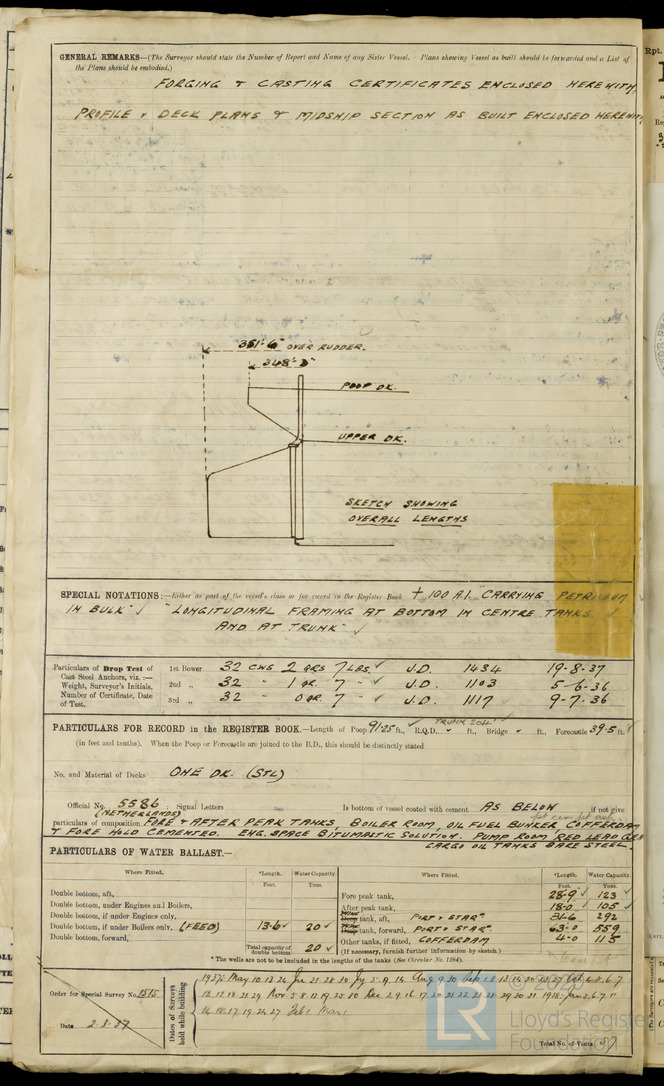 GENERAL REMARKS—(The Surveyor should state the Number of Report and Name of any Sister Vessel. Plans showing Vessel as built should be forwarded and a List of
the Plans should be embodied.)
FORGING & CASTING CERTIFICATES ENCLOSED HEREWITH.
PROFILE & DECK PLANS & MIDSHIP SECTION AS BUILT ENCLOSED HEREWITH
351'-6" OVER RUDDER.
348'-3"
POOP DK.
UPPER DK.
SKETCH SHOWING
OVERALL LENGTHS
SPECIAL NOTATIONS:—Either as part of the vessel's class or for record in the Register Book. + 100 A.1. "CARRYING PETROLEUM
IN BULK" ✓ "LONGITUDINAL FRAMING AT BOTTOM IN CENTRE TANKS ✓
AND AT TRUNK" ✓
Particulars of Drop Test of
Cast Steel Anchors, viz. :—
Weight, Surveyor's Initials,
Number of Certificate, Date
of Test.
1st Bower 32 CWS 2 QRS 7 LBS. ✓ J.D. 1434 19-8-37
2nd „ 32 " 1 QR. 7 " ✓ J.D. 1103 5-6-36
3rd „ 32 " 0 QR. 7 " ✓ J.D. 1117 9-7-36
PARTICULARS FOR RECORD in the REGISTER BOOK.—Length of Poop 91·25 ft., R.Q.D. " ft., Bridge " ft., Forecastle 39·5 ft.
TRUNK
(in feet and tenths). When the Poop or Forecastle are joined to the B.D., this should be distinctly stated
No. and Material of Decks ONE DK. (STL)
Official No. 5586 ; Signal Letters Is bottom of vessel coated with cement AS BELOW if not give
(NETHERLANDS)
particulars of composition FORE & AFTER PEAK TANKS, BOILER ROOM, OIL FUEL BUNKER, COFFERDAM
& FORE HOLD CEMENTED. ENG. SPACE BITUMASTIC SOLUTION. PUMP ROOM RED LEAD
CARGO OIL TANKS BARE STEEL.
PARTICULARS OF WATER BALLAST.—
Where Fitted. *Length. Water Capacity. Where Fitted. *Length. Water Capacity.
Feet. Tons. Feet. Tons.
Double bottom, aft,
Double bottom, under Engines and Boilers,
Double bottom, if under Engines only,
Double bottom, if under Boilers only, (FEED) 13·6 ✓ 20 ✓
Double bottom, forward,
Total capacity of double bottom 20 ✓
Fore peak tank, 28-9 ✓ 123 ✓
After peak tank, 18-0 ✓ 105 ✓
tank, aft, PORT & STARD. 31-6 292
tank, forward, PORT & STARD. 63-0 559
Other tanks, if fitted, COFFERDAM 4-0 115
(If necessary, furnish further information by sketch.)
* The wells are not to be included in the lengths of the tanks (See Circular No. 1284).
Order for Special Survey No. 1515
Date 2·3·37
Dates of Surveys
held while building
1937: May 10. 13 24
Feb 1. Mar 1.
Total No. of Visits 57
LR
© 2020
Lloyd's Register
Foundation
Rpt.